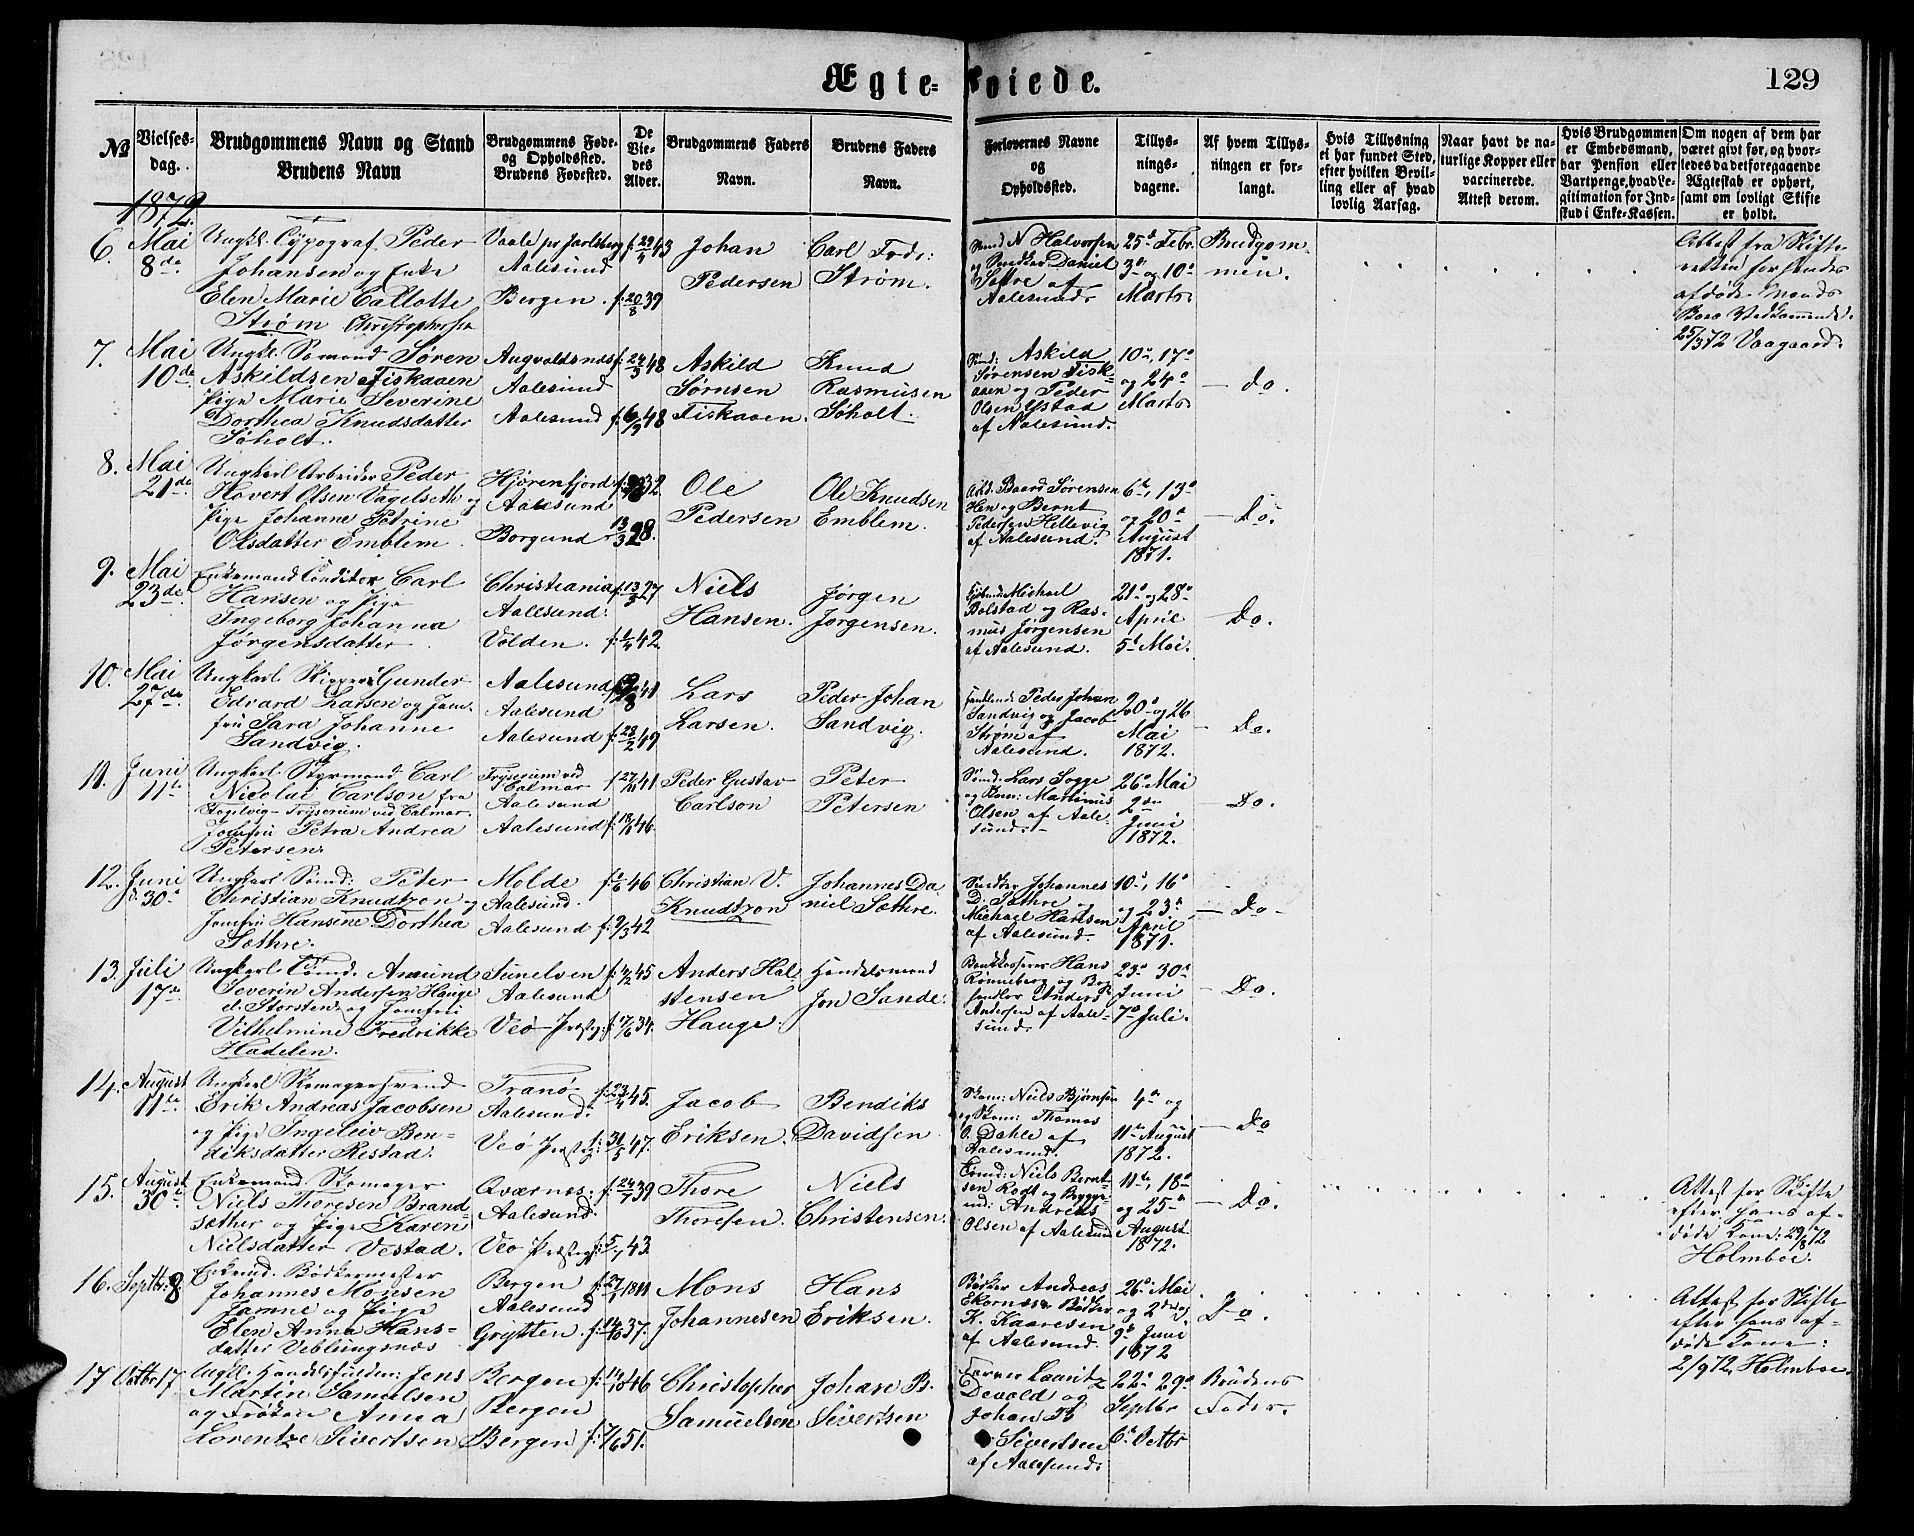 Ægte-Viede.
129
No
Vielses-dag.
Brudgommens Navn og Stand
Brudens Navn
Brudgommens Føde- og Opholdssted.
Brudens Fødested.
De Vie-des Alder.
Brudgommens Faders Navn.
Brudens Faders Navn.
Forlovernes Navne og Opholdssted.
Tillys-nings-dagene.
Af hvem Tillys-ningen er for-langt.
Hvis Tillysning ei har fundet Sted, efter hvilken Bevil-ling eller af hvad lovlig Aarsag.
Naar havt de na-turlige Kopper eller vaccinerede. Attest derom.
Hvis Brudgommen er Embedsmand, har Pension eller Vartpenge, hvad Le-gitimation for Ind-skud i Enke-Kassen.
Om nogen af dem har været givt før, og hvor-ledes da det foregaaende Ægteskab er ophørt, samt om lovligt Skifte er holdt.
1872
6. Mai 8de
Ungkl. Typograf. Peder
Johansen og Enke
Elen Marie Callotte
Strøm Christophersen
Vaale pr Jarlsberg f. 29/4 43
Aalesund
Bergen. f. 20/8 39
Johan
Pedersen
Carl Fredr:
Strøm.
N Halvorsen
og Snedker Daniel
Sætre af
Aalesund
25de Febr.
3de og 10de
Marts
Brudgom-
men.
Attest fra Skifte
retten for hendes
afdøde Mands
Boes Vedkommende.
25/3 72 Vaagaard.
7. Mai 10de
Ungkl. Sømand Søren
Askildsen Fiskaaen
Pige Marie Severine
Dorthea Knudsdatter
Søholt.
Augvaldsnæs f. 24/3 48
Aalesund
Aalesund f. 6/9 48
Askild
Sørnsen
Fiskaaen.
Knud
Rasmusen
Søholt.
Sømd: Askild
Sørensen Fisk-
aaen og Peder
Olsen Ystad
af Aalesund.
10de, 17de
og 24de
Marts
— do.
8. Mai 21de
Ungkarl Arbeider Peder
Hovert Olsen Vagelseth og
Pige Johanne Petrine
Olsdatter Emblem
Hjørenfjord 32
Aalesund
Borgund 13/3 28.
Ole
Pedersen
Ole Knudsen
Emblem.
Arbd. Baard Sørensen
Hen og Bernt
Pedersen Hellevig
af Aalesund.
6te, 13de
og 20de
August
1871.
— Do.
9. Mai 23de
Enkemand Conditor Carl
Hansen og Pige
Ingeborg Johanna
Jørgensdatter
Christiania f. 13/3 27
Aalesund.
Volden. f. 1/4 42
Niels
Hansen.
Jørgen
Jørgensen.
Michael
Bolstad og Ras-
mus Jørgensen
af Aalesund.
21de og 28de
April
5te Mai.
— Do.
10. Mai 27de
Ungkarl Skipper Gunder
Edvard Larsen og Jom-
fru Sara Johanne
Sandvig.
Aalesund 41
Aalesund
Aalesund f. 23/2 49
Lars
Larsen.
Peder Johan
Sandvig.
Handlende Peder Johan
Sandvig og Jacob
Strøm af
Aalesund.
20de og 26
Mai
1872.
— Do.
11. Juni 11te
Ungkarl Styrmand Carl
Nicolai Carlson fra
Fogelvig - Tryserum ved Calmar.
Jomfru Petra Andrea
Petersen
Tryserum ved
Calmar f. 27/11 41
Aalesund
Aalesund f. 18/ 46.
Peder Gustav
Carlson
Peter
Petersen
Sømd: Lars Sogge
og Skom: Martinus
Olsen af Aale-
sund.
26de Mai
2den
Juni
1872.
— Do.
12. Juni 30te
Ungkarl Sømd: Peter
Christian Knudtzon og
Jomfru Hansine Dorthea
Sæthre.
Molde f. 46
Aalesund.
Aalesund f. 9/3 42
Christian V.
Knudtzon
Johannes Da
niel Sæthre.
Snedker Johannes
D. Sæthre og
Michael Hansen
af Aalesund.
10de, 16de
og 23de
April
1871.
— Do —
13. Juli 17de
Ungkarl Amund
Severin Andersen Hauge
Storsten og Jomfru
Vilhelmine Fredrikke
Hadelen.
Sunelven f. 45
Aalesund
Veø Præstg. f. 34.
Anders Hal-
stensen
Hauge.
Handelsmand
Jon Sande.
Bankkasserer Hans
Rønneberg og Bog-
handler Anders
Andersen af Aale-
sund.
23de 30te
Juni
7de Juli.
— Do.
14. August 11te
Ungkarl Skomagersvend
Erik Andreas Jacobsen
og Pige Ingeleiv Ben-
diksdatter Restad.
Tranø f. 23/4 45.
Aalesund.
Veø Præstg f. 31/5 47.
Jacob
Eriksen.
Bendiks
Davidsen
Skom: Niels Bjørnsen
og Skom: Thomas
O. Dahle af
Aalesund.
4de og
11te August
1872.
— Do
15. August 30te
Enkemand Skomager
Niels Thoresen Brand-
sæther og Pige Karen
Nielsdatter Vestad.
Qværnes. f. 24/7 39
Aalesund.
Veø Præstegj f. 5/7 43
Thore
Thoresen.
Niels
Christensen.
Niels Bernt-
sen Rødt og Bygge-
md: Andreas
Olsen af Aalesund
11te, 18de
og 25de
August
1872.
— Do.
Attest for Skifte
efter hans af-
døde Kone: 29/8 72
Holmboe.
16. Septbr: 8
Enkemd. Bødkermester
Johannes Monsen
Janne og Pige
Elen Anna Hans-
datter Veblungsnæs
Bergen f. 27/ 1811
Aalesund
Grytten. f. 14/10 37.
Mons
Johannesen
Hans
Eriksen.
Bødker Andreas
Ekornæs Bødker
K. Kaaresen
af Aalesund.
26de Mai
og 2den og
9de Juni
1872
Do.
Attest for Skifte
efter hans af-
døde Kone:
2/9 72 Holmboe.
17 Octbr 17
Ungkl: Handelsfuldm: Jens
Martin Samuelsen
og Frøken Anna
Lorentze Sivertsen
Bergen f. 14/10 46
Bergen
Bergen f. 7/6 51.
Christopher
Samuelsen
Johan B.
Sivertsen
Lauritz
Devold og
Johan B
Sivertsen
af Aalesund.
22de 29de
Septbr
6te Octbr
Brudens
Fader.